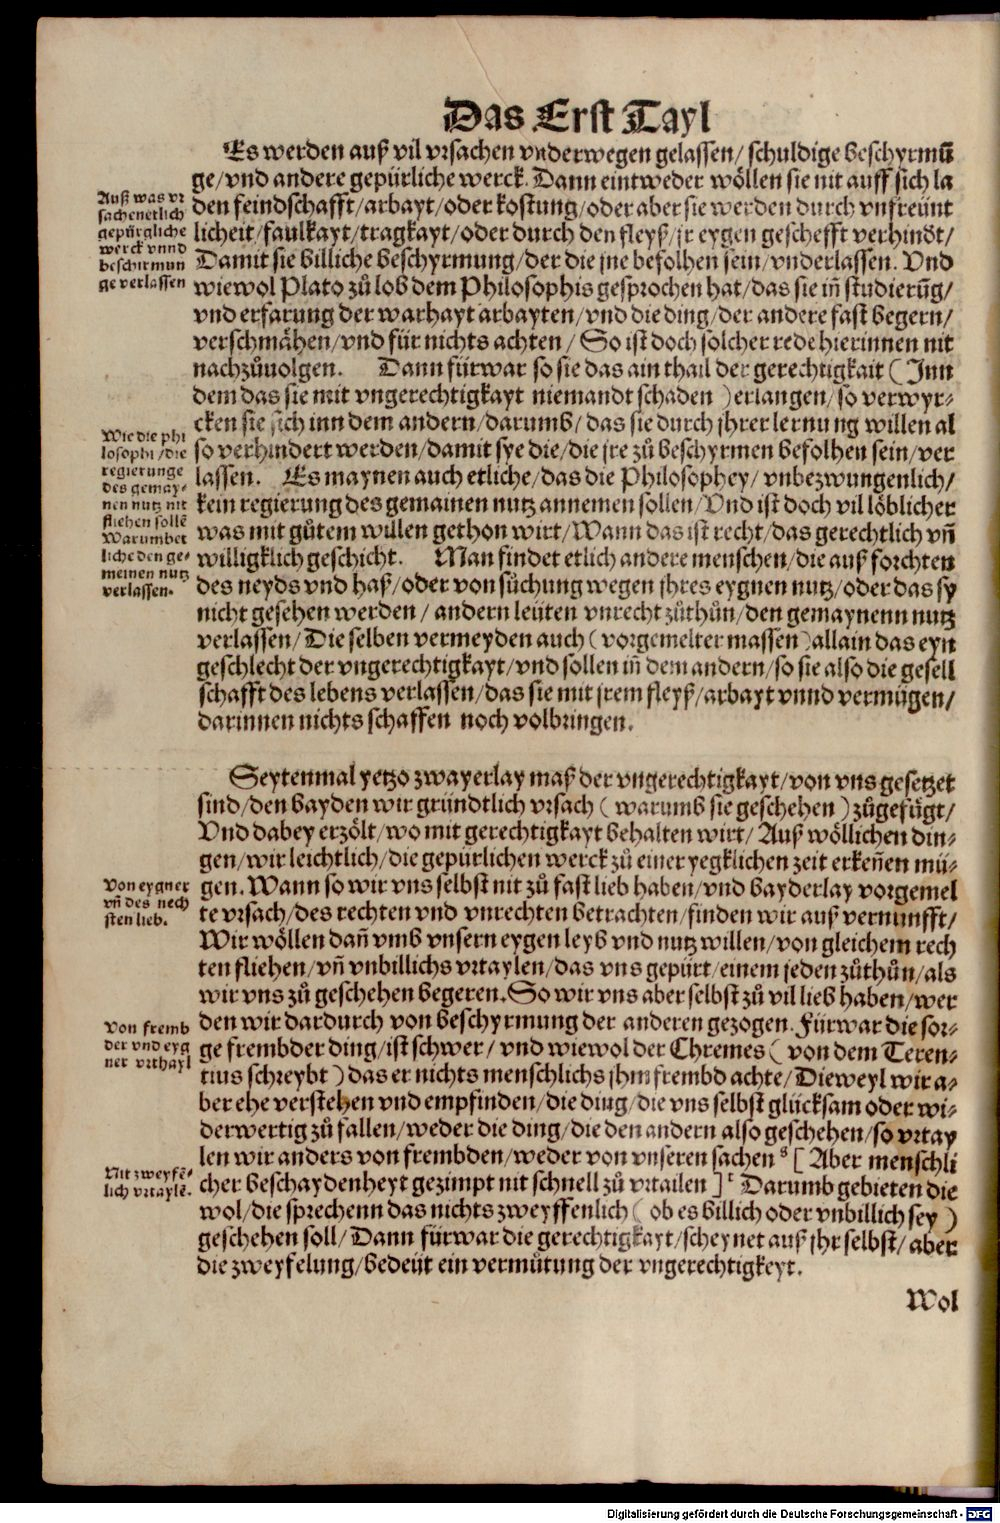 Das Erst Tayl
Es werden auß vil vrsachen vnderwegen gelassen/ schuldige beschyrmū
ge/vnd andere gepürliche werck. Dann eintweder wöllen sie nit auff sich la
den feindschafft/arbayt/oder kostung/oder aber sie werden durch vnfreünt
licheit/faulkayt/tragkayt/oder durch den fleyß/jr eygen geschefft verhindt/
Damit sie billiche beschyrmung/der die jne befolhen sein/vnderlassen. Vnd
wiewol Plato zů lob dem Philosophis gesprochen hat/das sie iñ studierūg/
vnd erfarung der warhayt arbayten/vnd die ding/der andere fast begern/
verschmähen/vnd für nichts achten/ So ist doch solcher rede hierinnen nit
nachzůuolgen. Dann fürwar so sie das ain thail der gerechtigkait (Jnn
dem das sie mit vngerechtigkayt niemandt schaden) erlangen/so verwyr-
cken sie sich inn dem andern/darumb/das sie durch jhrer lernung willen al
so verhindert werden/damit sye die/die jre zů beschyrmen befolhen sein/ver
lassen. Es maynen auch etliche/das die Philosophey/vnbezwungenlich/
kein regierung des gemainen nutz annemen sollen/Vnd ist doch vil löblicher
was mit gůtem willen gethon wirt/Wann das ist recht/das gerechtlich vñ
willigklich geschicht. Man findet etlich andere menschen/die auß forchten
des neyds vnd haß/oder von sůchung wegen jhres eygnen nutz/oder das sy
nicht gesehen werden/ andern leüten vnrecht zůthůn/den gemaynenn nutz
verlassen/Die selben vermeyden auch (vorgemelter massen) allain das eyn
geschlecht der vngerechtigkayt/vnd sollen iñ dem andern/so sie also die gesell
schafft des lebens verlassen/das sie mit jrem fleyß/arbayt vnnd vermügen/
darinnen nichts schaffen noch volbringen.
Auß was vr
sachen etlich
gepürgliche
werck vnnd
beschirmun
ge verlassen
Wie die phi
losophi/die
regierunge
des gemay-
nen nutz nit
fliehen sollē
Warumb et
liche den ge-
meinen nutz
verlassen.
Seytenmal yetzo zwayerlay maß der vngerechtigkayt/von vns gesetzet
sind/den bayden wir gründtlich vrsach (warumb sie geschehen) zůgefügt/
Vnd dabey erzölt/wo mit gerechtigkayt behalten wirt/Auß wöllichen din-
gen/wir leichtlich/die gepürlichen werck zů einer yegklichen zeit erkeñen mü-
gen. Wann so wir vns selbst nit zů fast lieb haben/vnd bayderlay vorgemel
te vrsach/des rechten vnd vnrechten betrachten/finden wir auß vernunfft/
Wir wöllen dañ vmb vnsern eygen leyb vnd nutz willen/von gleichem rech
ten fliehen/vñ vnbillichs vrtaylen/das vns gepürt/einem jeden zůthůn/als
wir vns zů geschehen begeren. So wir vns aber selbst zů vil lieb haben/wer
den wir dardurch von beschyrmung der anderen gezogen. Fürwar die sor-
ge frembder ding/ist schwer/ vnd wiewol der Chremes (von dem Teren-
tius schreybt) das er nichts menschlichs jhm frembd achte/Dieweyl wir a-
ber ehe verstehen vnd empfinden/die ding/die vns selbst glücksam oder wi-
derwertig zů fallen/weder die ding/die den andern also geschehen/so vrtay
len wir anders von frembden/weder von vnseren sachen s [Aber menschli
cher beschaydenheyt gezimpt nit schnell zů vrtailen] t Darumb gebieten die
wol/die sprechenn das nichts zweyffenlich (ob es billich oder vnbillich sey)
geschehen soll/Dann fürwar die gerechtigkayt/scheynet auß jhr selbst/aber
die zweyfelung/bedeüt ein vermůtung der vngerechtigkeyt.
Von eygner
vñ des nech
sten lieb.
Von fremb
der vnd eyg
ner vrthayl
Nit zweyfē-
lich vrtaylē.
Wol
Digitalisierung gefördert durch die Deutsche Forschungsgemeinschaft - DFG